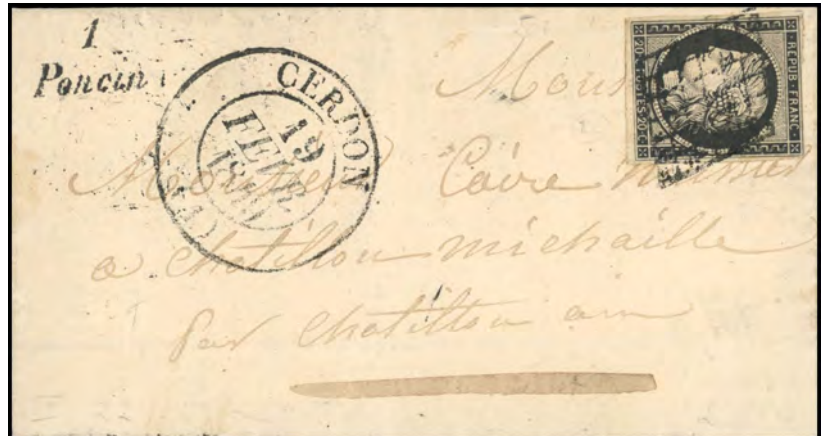 1
Poncin
CERDON
19
FEVR
REPUB. FRANC.
Mons
Monsieur Caire
a chatillon michaille
par chatillon ain